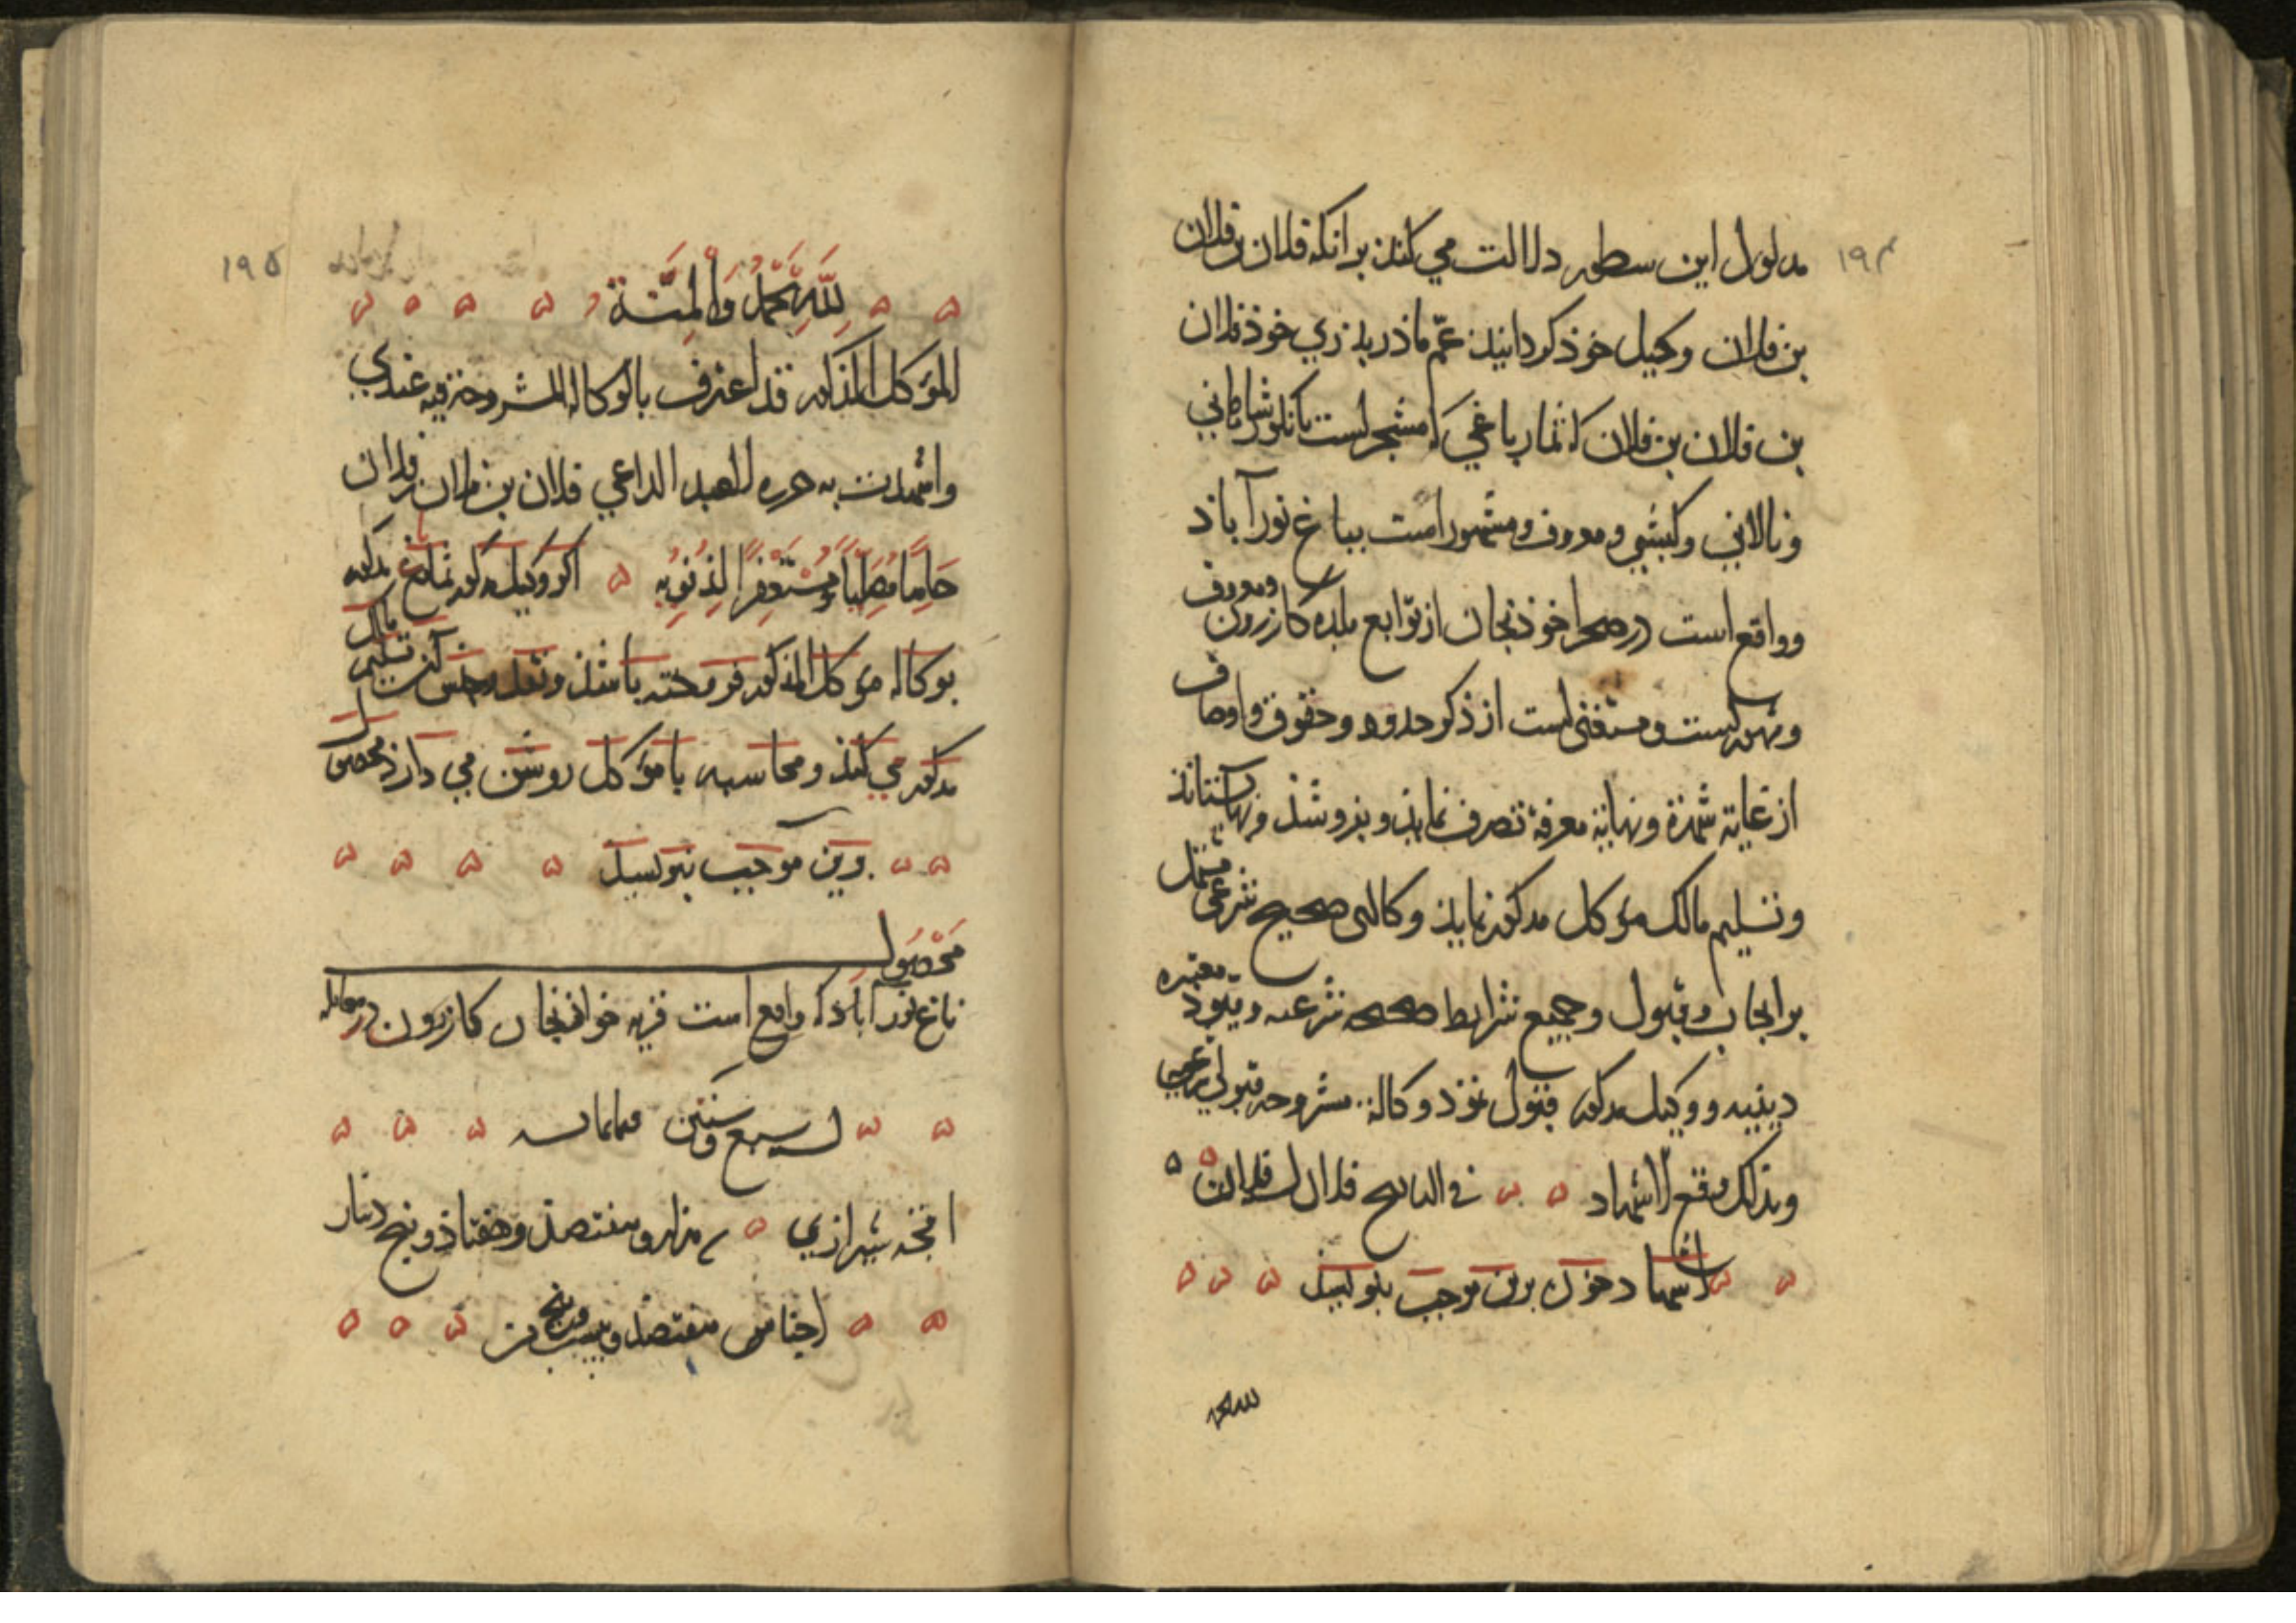 ۱۹۴
مدلول این سطور دلالت می کند برانکه فلان بن فلان
بن فلان وکیل خوذ کردانیذ عم ماذر بذری خوذ فلان
بن فلان بن فلان که ثمار باغی که مشجر است
ونالانی وکبشی ومعروف ومشهور است بباغ نورآباذ
وواقع است در صحرا خوذنجان از توابع بلده کازرون ومعروف
ومشهور است ومستغنی است از ذکر حدود وحقوق واوصاف
از غایة شهرة ونهایة معرفة تصرف نمایذ وبفروشذ وبها بستانذ
وتسلیم مالک مؤکل مذکور نمایذ وکالتی صحیح شرعی مشتمل
بر ایجاب وقبول وجمیع شرایط صحیحه شرعیه وقیود معتبره
دینیه ووکیل مذکور قبول نموذ وکالة مشروحه قبولی شرعی
وبذلک وقع الاشهاد في التاریخ فلان
اشهاد خوذ برین موجب بنویسد
۱۹۵
لله الحمد والمنة
المؤکل المذکور قد اعترف بالوکالة المشروحة فیه عندي
واشهدت به حرره العبد الداعي فلان بن فلان بن فلان
حامدا مصلیا ومستغفرا لذنوبه اکر وکیل مذکور ثمار باغ مذکور
بوکالة مؤکل المذکور فروخته باشذ ونقد وجنس آن تسلیم مالک
مذکور می کنذ ومحاسبه با مؤکل روشن می دارذ محصول
برین موجب بنویسد
محصول
باغ نورآباذ که واقع است قریه خوانجان کازرون در معامله
لسنة سبع وستین وثمانمائه
شیرازی هزار وهفتصذ وهفتاذ وپنج دینار
اجناس هفتصذ وبیست وپنج من